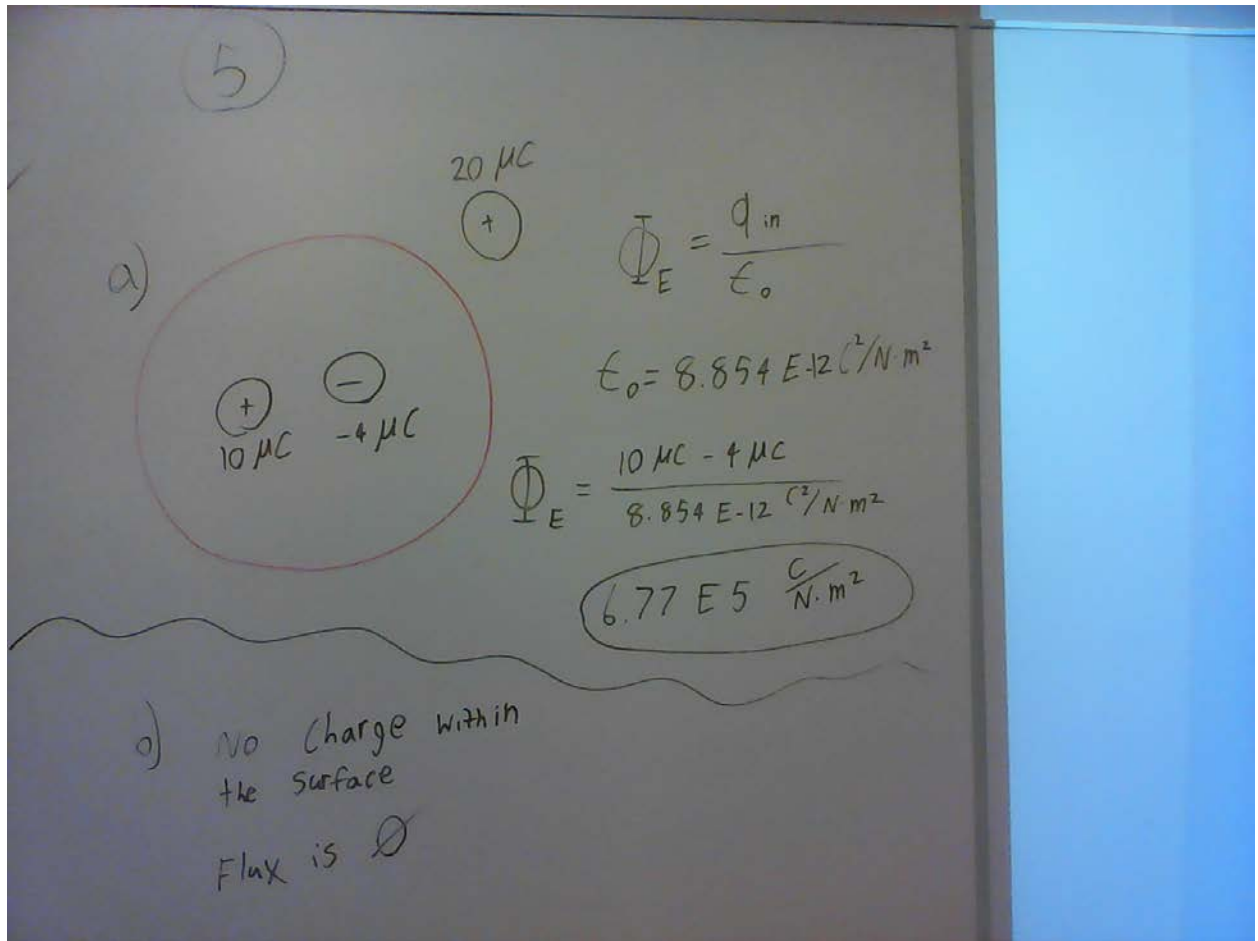 5
20 μC
+
a)
Φ_E = q in / ε₀
ε₀ = 8.854 E-12 C²/N·m²
+
−
10 μC
-4 μC
Φ_E = 10 μC - 4 μC / 8.854 E-12 C²/N·m²
6.77 E 5 C/N·m²
b) No Charge within
the surface
Flux is Ø